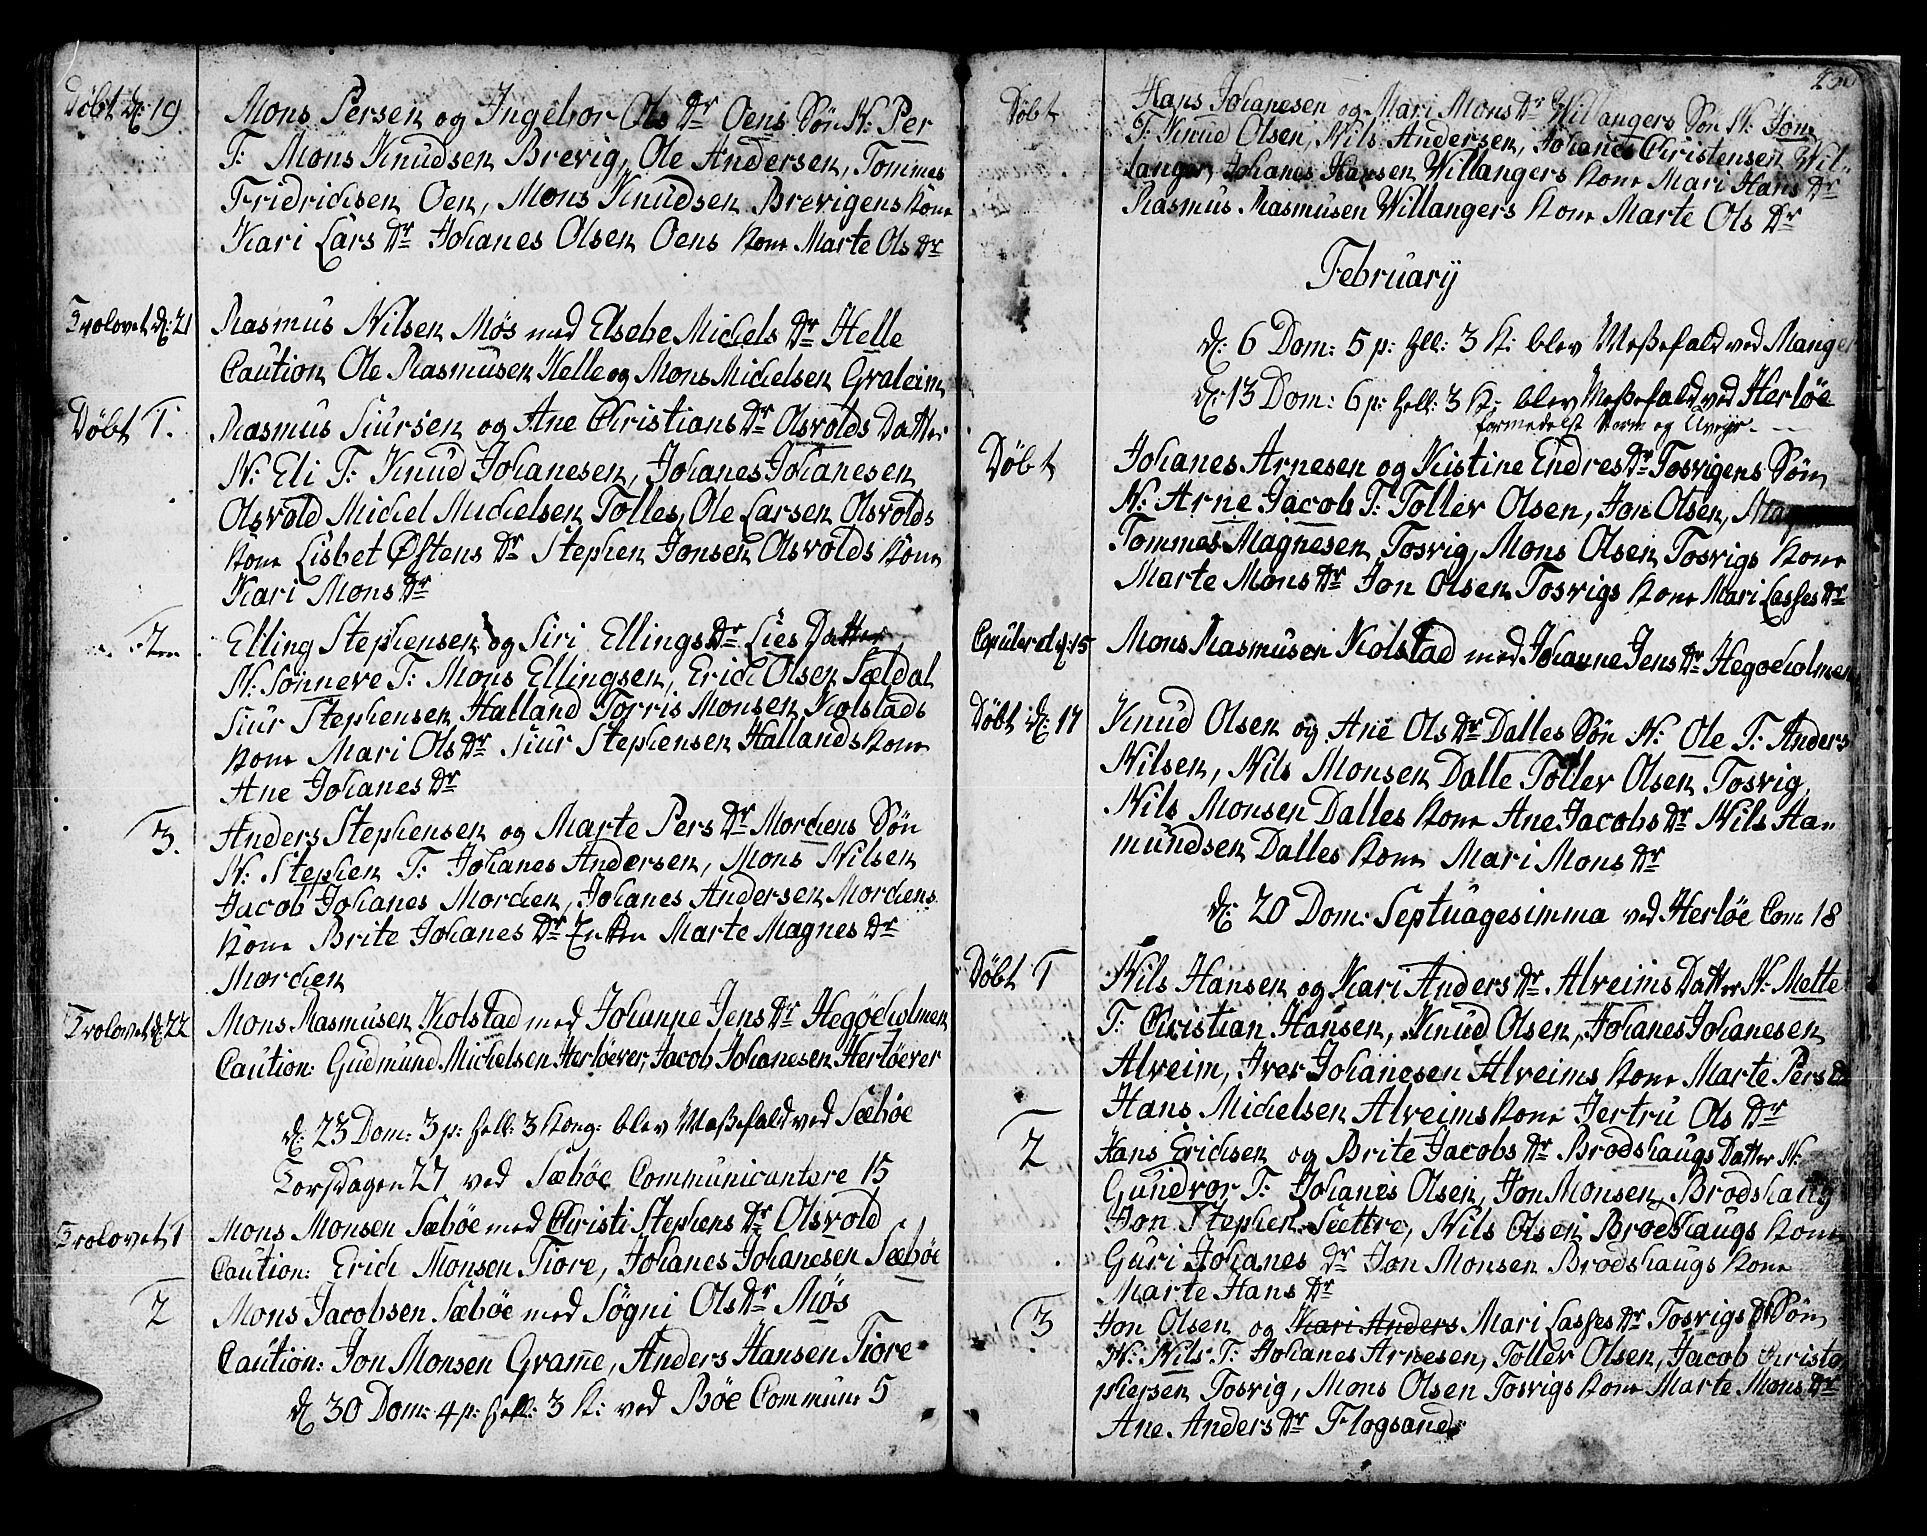 Døbt d: 19 Mons Persen og Ingebor Ols Dr Oens Søn N: Per
T: Mons Knudsen Brevig, Ole Andersen, Tommes
Fridrichsen Oen, Mons Knudsen Brevigens Kone
Kari Lars Dr Johanes Olsen Oens Kone Marte Ols Dr
Trolovet d: 21 Rasmus Nilsen Møs med Elsebe Michels Dr Helle
Caution Ole Rasmusen Helle og Mons Michelsen Graleim
Døbt 1. Rasmus Siursen og Ane Christians Dr Olsvolds Datter
N: Eli T: Knud Johanesen, Johanes Johanesen
Olsvold Michel Michelsen Tolles, Ole Larsen Olsvolds
Kone Lisbet Østens Dr Stephen Jonsen Olsvolds Kone
Kari Mons Dr
2. Elling Stephensen og Siri Ellings Dr Lies Datter
N: Sønneve T: Mons Ellingsen, Erich Olsen Sældal
Siur Stephensen Halland Torris Monsen Kolstads
Kone Mari Ols Dr Siur Stephensen Hallands Kone
Ane Johanes Dr
3. Anders Stephensen og Marte Pers Dr Morchens Søn
N: Stephen T: Johanes Andersen, Mons Nilsen
Jacob Johanes Morchen, Johanes Andersen Morchens
Kone Brite Johanes Dr Enken Marte Magnes Dr
Morchen
Trolovet d: 22 Mons Rasmusen Kolstad med Johanne Jens Dr Hegøeholmen
Caution: Gudmund Michelsen Herløever, Jacob Johanesen Herløever
d: 23 Dom: 3 p: hell: 3 Kong: blev Meßefald ved Sæbøe
Torsdagen 27 ved Sæbøe Communicantere 15
Trolovet 1 Mons Monsen Sæbøe med Christi Stephens Dr Olsvold
Caution: Erich Monsen Tiore, Johanes Johanesen Sæbøe
2 Mons Jacobsen Sæbøe med Søgni Ols Dr Møs
Caution: Jon Monsen Grame, Anders Hansen Tiore
d: 30 Dom: 4 p: hell: 3 K: ved Bøe Commun: 5
Døbt Hans Johanesen og Mari Mons Dr Willangers Søn N: Jon
T: Knud Olsen, Nils Andersen, Johanes Christensen Wil-
langer, Johanes Hansen Willangers Kone Mari Hans Dr
Rasmus Rasmusen Willangers Kone Marte Ols Dr
February
d: 6 Dom: 5 p: hell: 3 K: blev Meßefald ved Manger
d: 13 Dom: 6 p: hell: 3 K: blev Meßefald ved Herløe
formedelst Storm og Uveyr.
Døbt Johanes Arnesen og Kistine Endres Dr Tosvigens Søn
N: Arne Jacob T: Toller Olsen, Jon Olsen,
Tommes Magnesen Tosvig, Mons Olsen Tosvigs Kone
Marte Mons Dr Jon Olsen Tosvigs Kone Mari Lasses Dr
Copulered d: 15 Mons Rasmusen Kolstad med Johanne Jens Dr Hegøeholmen
Døbt d: 17 Knud Olsen og Ane Ols Dr Dalles Søn N: Ole T: Anders
Nilsen, Nils Monsen Dalle Toller Olsen Tosvig,
Nils Monsen Dalles Kone Ane Jacobs Dr Nils Ha-
mundsen Dalles Kone Mari Mons Dr
d: 20 Dom: Septuagesimma ved Herløe Com 18
Døbt 1 Nils Hansen og Kari Anders Dr Alreims Datter N: Mette
T: Christian Hansen, Knud Olsen, Johanes Johanesen
Alreim, Iver Johanesen Alreims Kone Marte Pers Dr
Hans Michelsen Alreims Kone Jertru Ols Dr
2 Hans Erichsen og Brite Jacobs Dr Brodshaugs Datter N:
Gundvor T: Johanes Olsen, Jon Monsen Brodshaug
Jon Stephen Sættre, Nils Olsen Brodshaugs Kone
Guri Johanes Dr Jon Monsen Brodshaugs Kone
Marte Hans Dr
3 Jon Olsen og Kari Anders Mari Lasses Dr Tosvigs Søn
N: Nils T: Johanes Arnesen, Toller Olsen, Jacob Christo
phersen Tosvig, Mons Olsen Tosvigs Kone Marte Mons Dr
Ane Anders Dr Flogsand